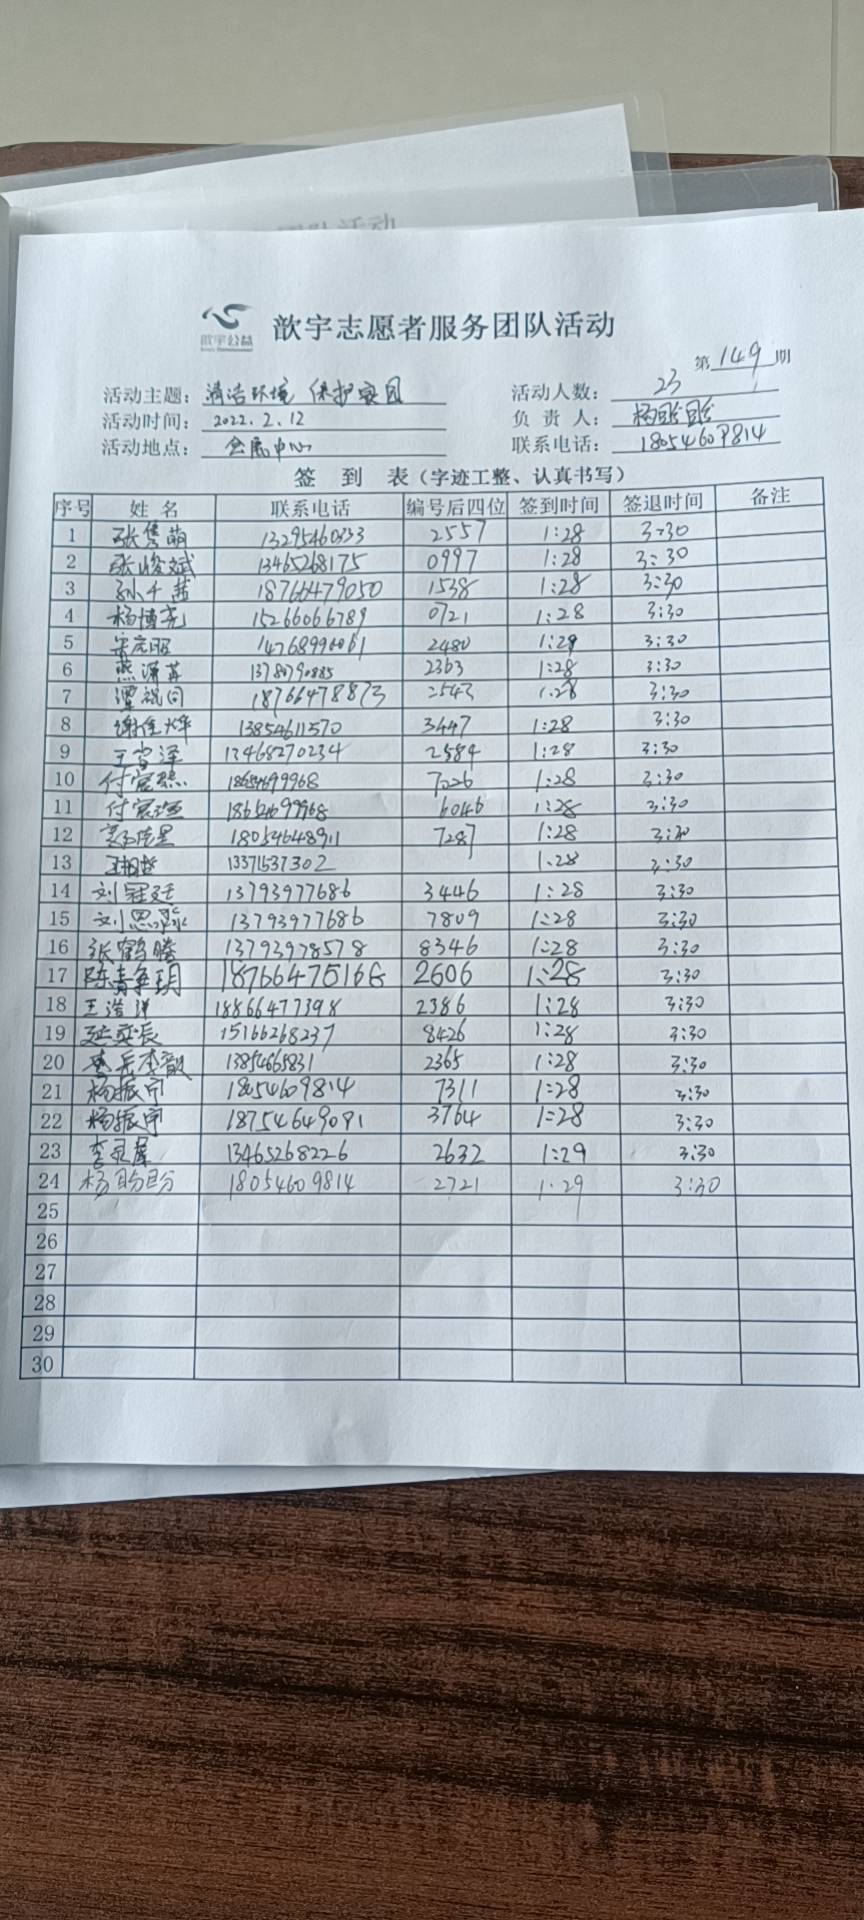 歆宇公益
歆宇志愿者服务团队活动
第149期
活动主题：清洁环境 保护家园 活动人数：23
活动时间：2022.2.12 负责人：杨盼盼
活动地点：会展中心 联系电话：18054609814
签到表（字迹工整、认真书写）
序号 姓名 联系电话 编号后四位 签到时间 签退时间 备注
1 张隽萌 13295460333 2557 1:28 3:30
2 张峻斌 13465268175 0997 1:28 3:30
3 孙千茜 18766479050 1538 1:28 3:30
4 杨博尧 15266066789 0721 1:28 3:30
5 14768996061 2480 1:29 3:30
6 13780790885 2363 1:28 3:30
7 18766478873 2543 1:28 3:30
8 谢佳烨 13854611570 3447 1:28 3:30
9 王 泽 13468270234 2584 1:28 3:30
10 付 18654699968 7026 1:28 3:30
11 付 18654699968 6046 1:28 3:30
12 18054648911 7287 1:28 3:30
13 13371537302 1:28 3:30
14 刘冠廷 13793977686 3446 1:28 3:30
15 刘思 13793977686 7809 1:28 3:30
16 张鹤腾 13793978578 8346 1:28 3:30
17 陈 玥 18766475166 2606 1:28 3:30
18 王浩洋 18866477398 2386 1:28 3:30
19 延奕辰 15166268237 8426 1:28 3:30
20 13854665831 2365 1:28 3:30
21 杨振宇 18054609814 7311 1:28 3:30
22 杨振宇 18754649091 3764 1:28 3:30
23 李灵犀 13465268226 2632 1:29 3:30
24 杨盼盼 18054609814 2721 1:29 3:30
25
26
27
28
29
30